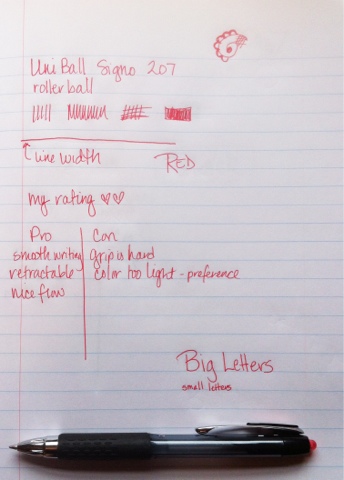 6
UniBall Signo 207
rollerball
line width
RED
my rating ♡♡
Pro Con
smooth writing grip is hard
retractable color too light - preference
nice flow
Big Letters
small letters